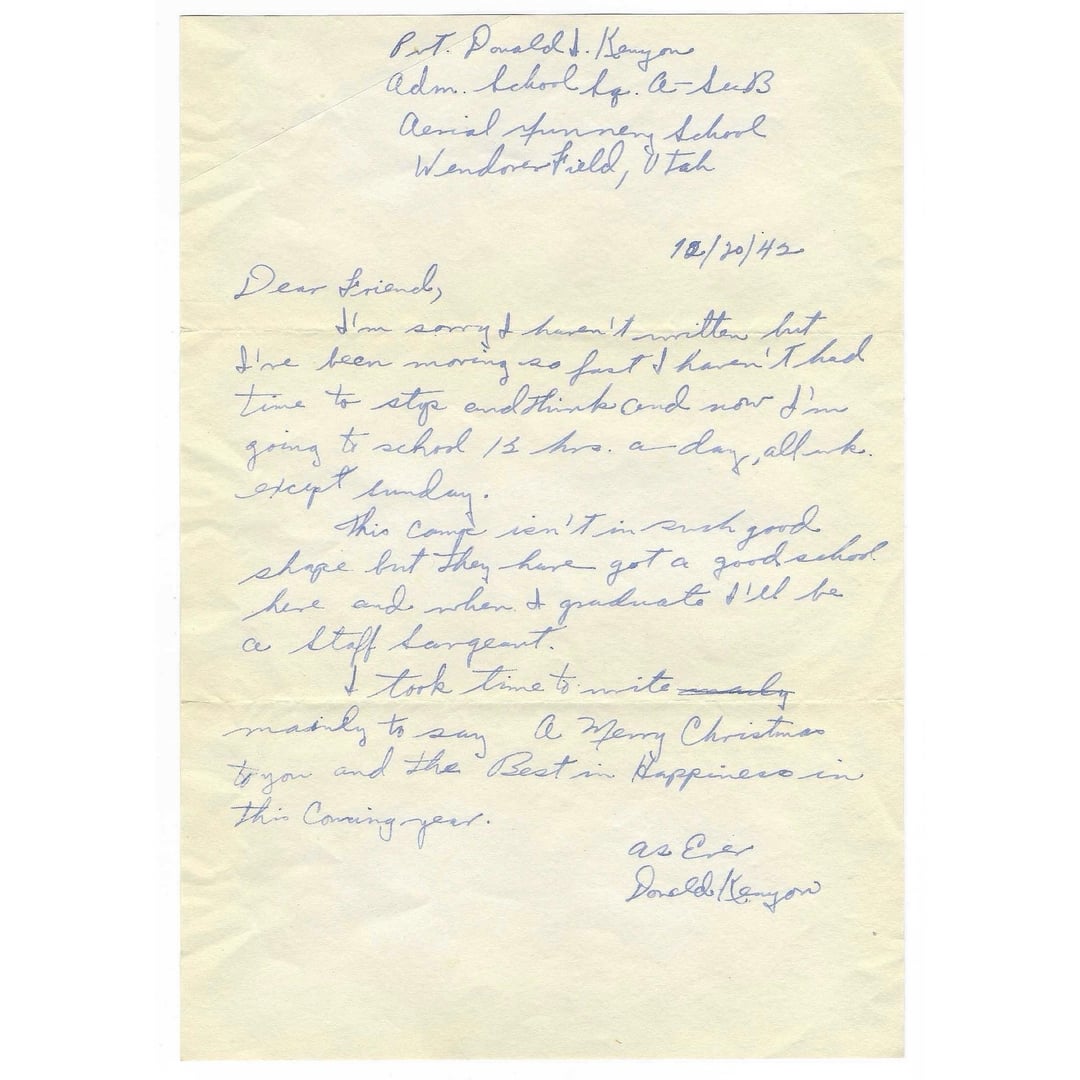 Pvt. Donald I. Kenyon
Adm. School Sq. A-SecB
Aerial Gunnery School
Wendover Field, Utah
12/20/42
Dear Friend,
I'm sorry I haven't written but
I've been moving so fast I haven't had
time to stop and think and now I'm
going to school 12 hrs. a day, all wk.
except Sunday.
This camp isn't in such good
shape but they have got a good school
here and when I graduate I'll be
a Staff Sargeant.
I took time to write
mainly to say A Merry Christmas
to you and the Best in Happiness in
this Coming year.
As Ever
Donald Kenyon